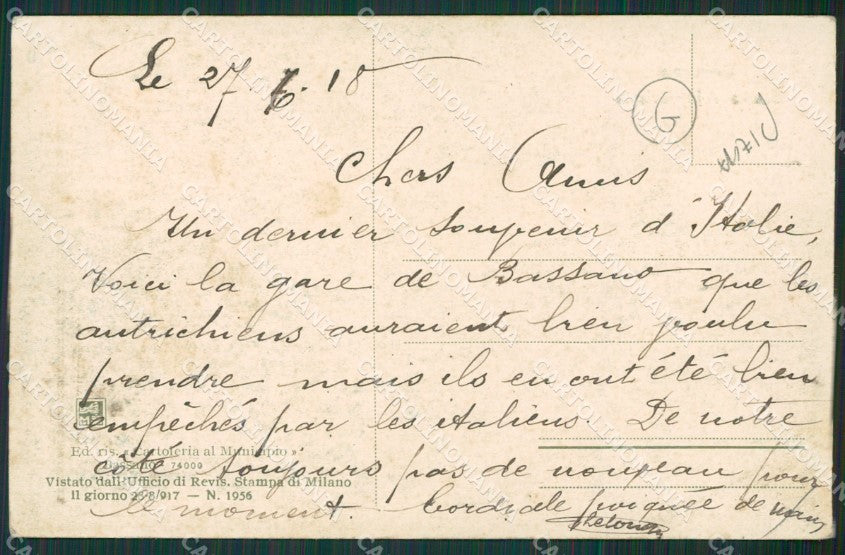 Le 27 6. 18
G
Chers Amis
Un dernier souvenir d'Italie,
Voici la gare de Bassano que les
autrichiens auraient bien voulu
prendre mais ils en ont été bien
empêchés par les italiens. De notre
côté toujours pas de nouveau pour
le moment. Cordiale poignée de main
Ed. ris. « Cartoleria al Municipio »
Bassano 74000
Vistato dall'Ufficio di Revis. Stampa di Milano
Il giorno 25/8/917 — N. 1956
CARTOLINOMANIA